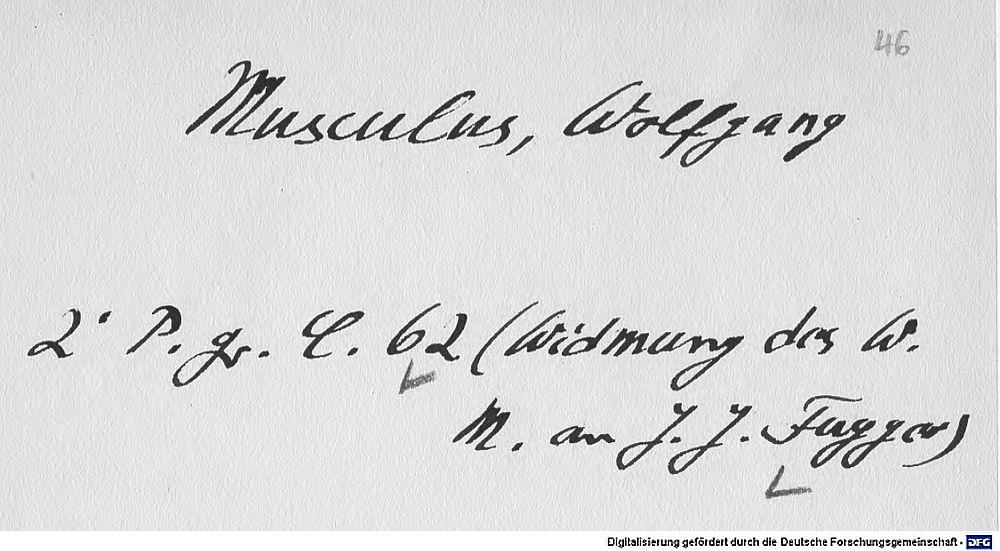 46
Musculus, Wolfgang
2° P. gr. C. 62 (Widmung des W.
M. an J. J. Fugger)
Digitalisierung gefördert durch die Deutsche Forschungsgemeinschaft - DFG